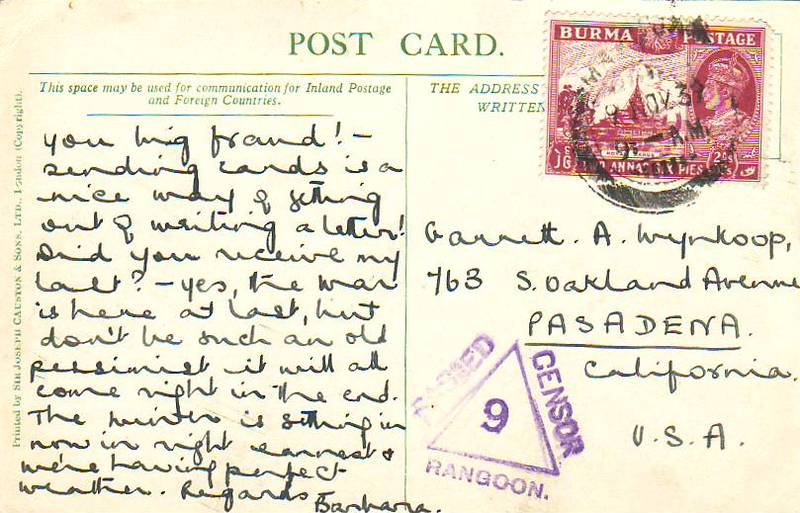 POST CARD.
This space may be used for communication for Inland Postage
and Foreign Countries.
THE ADDRESS
WRITTEN
BURMA POSTAGE
NOV 39
A.M.
ANNAS SIX PIES
Printed by SIR JOSEPH CAUSTON & SONS, LTD., London (Copyright).
you big fraud!-
sending cards is a
nice way of getting
out of writing a letter!
Did you receive my
last? - yes, the war
is here at last, but
don't be such an old
pessimist it will all
come right in the end.
The winter is setting in
now in right earnest &
we're having perfect
weather. Regards
Barbara.
Garrett. A. Wynkoop,
763 S. Oakland Avenue
PASADENA.
California.
U.S.A.
PASSED
CENSOR
9
RANGOON.